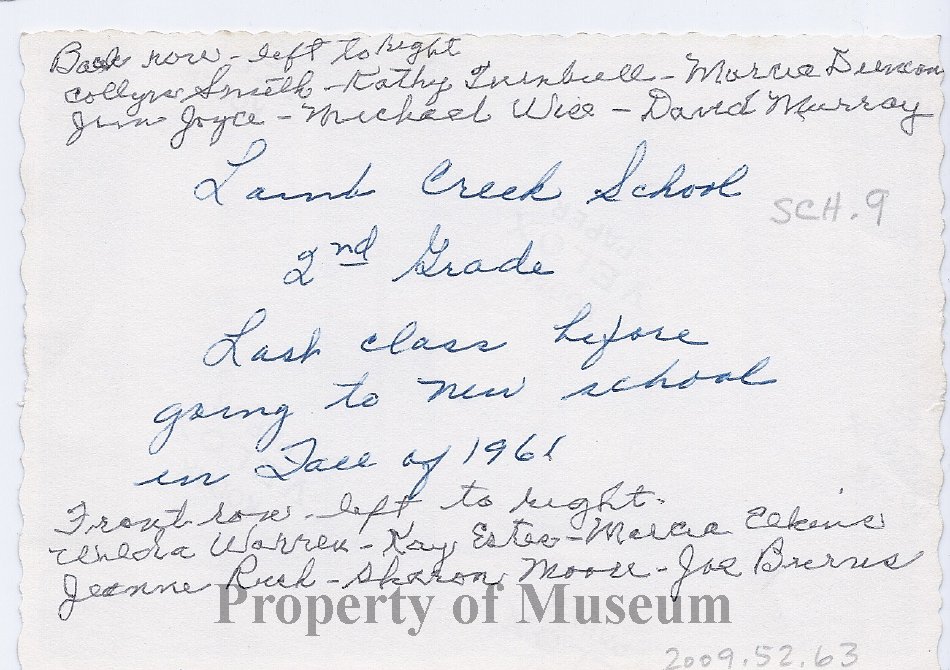 Back row - left to right
Collyn Smith - Kathy Turnbull - Marcia Duncan
Jim Joyce - Michael Wise - David Murray
Lamb Creek School
SCH. 9
2nd Grade
Last class before
going to new school
in Fall of 1961
Front row - left to right.
Wilda Warren - Kay Estes - Marcia Elkins
Jeanne Rush - Sharon Moore - Joe Burns
Property of Museum
2009.52.63